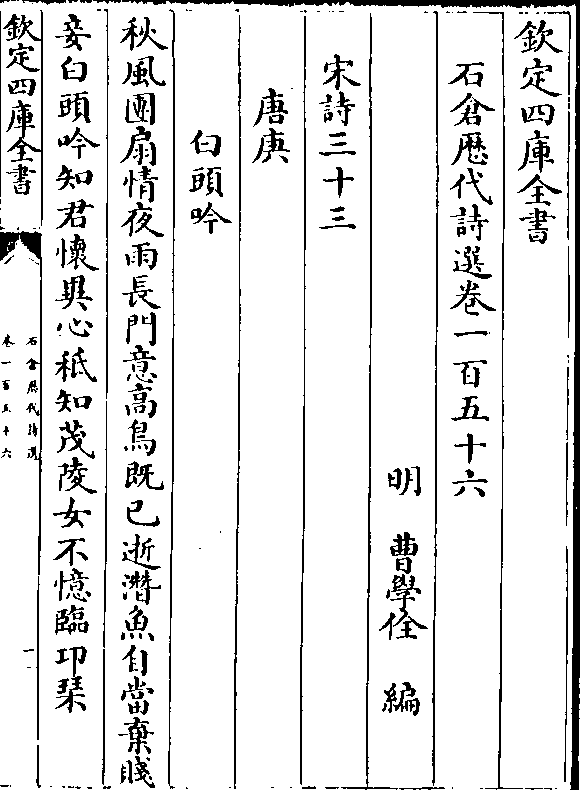 欽定四庫全書
石倉歴代詩選卷一百五十六
明　曹學佺　編
宋詩三十三
唐庚
白頭吟
秋風團扇情夜雨長門意高鳥既已逝潛魚自當棄賤
妾白頭吟知君懷異心秪知茂陵女不憶臨卭琴
欽定四庫全書
石倉歷代詩選
卷一百五十六
一